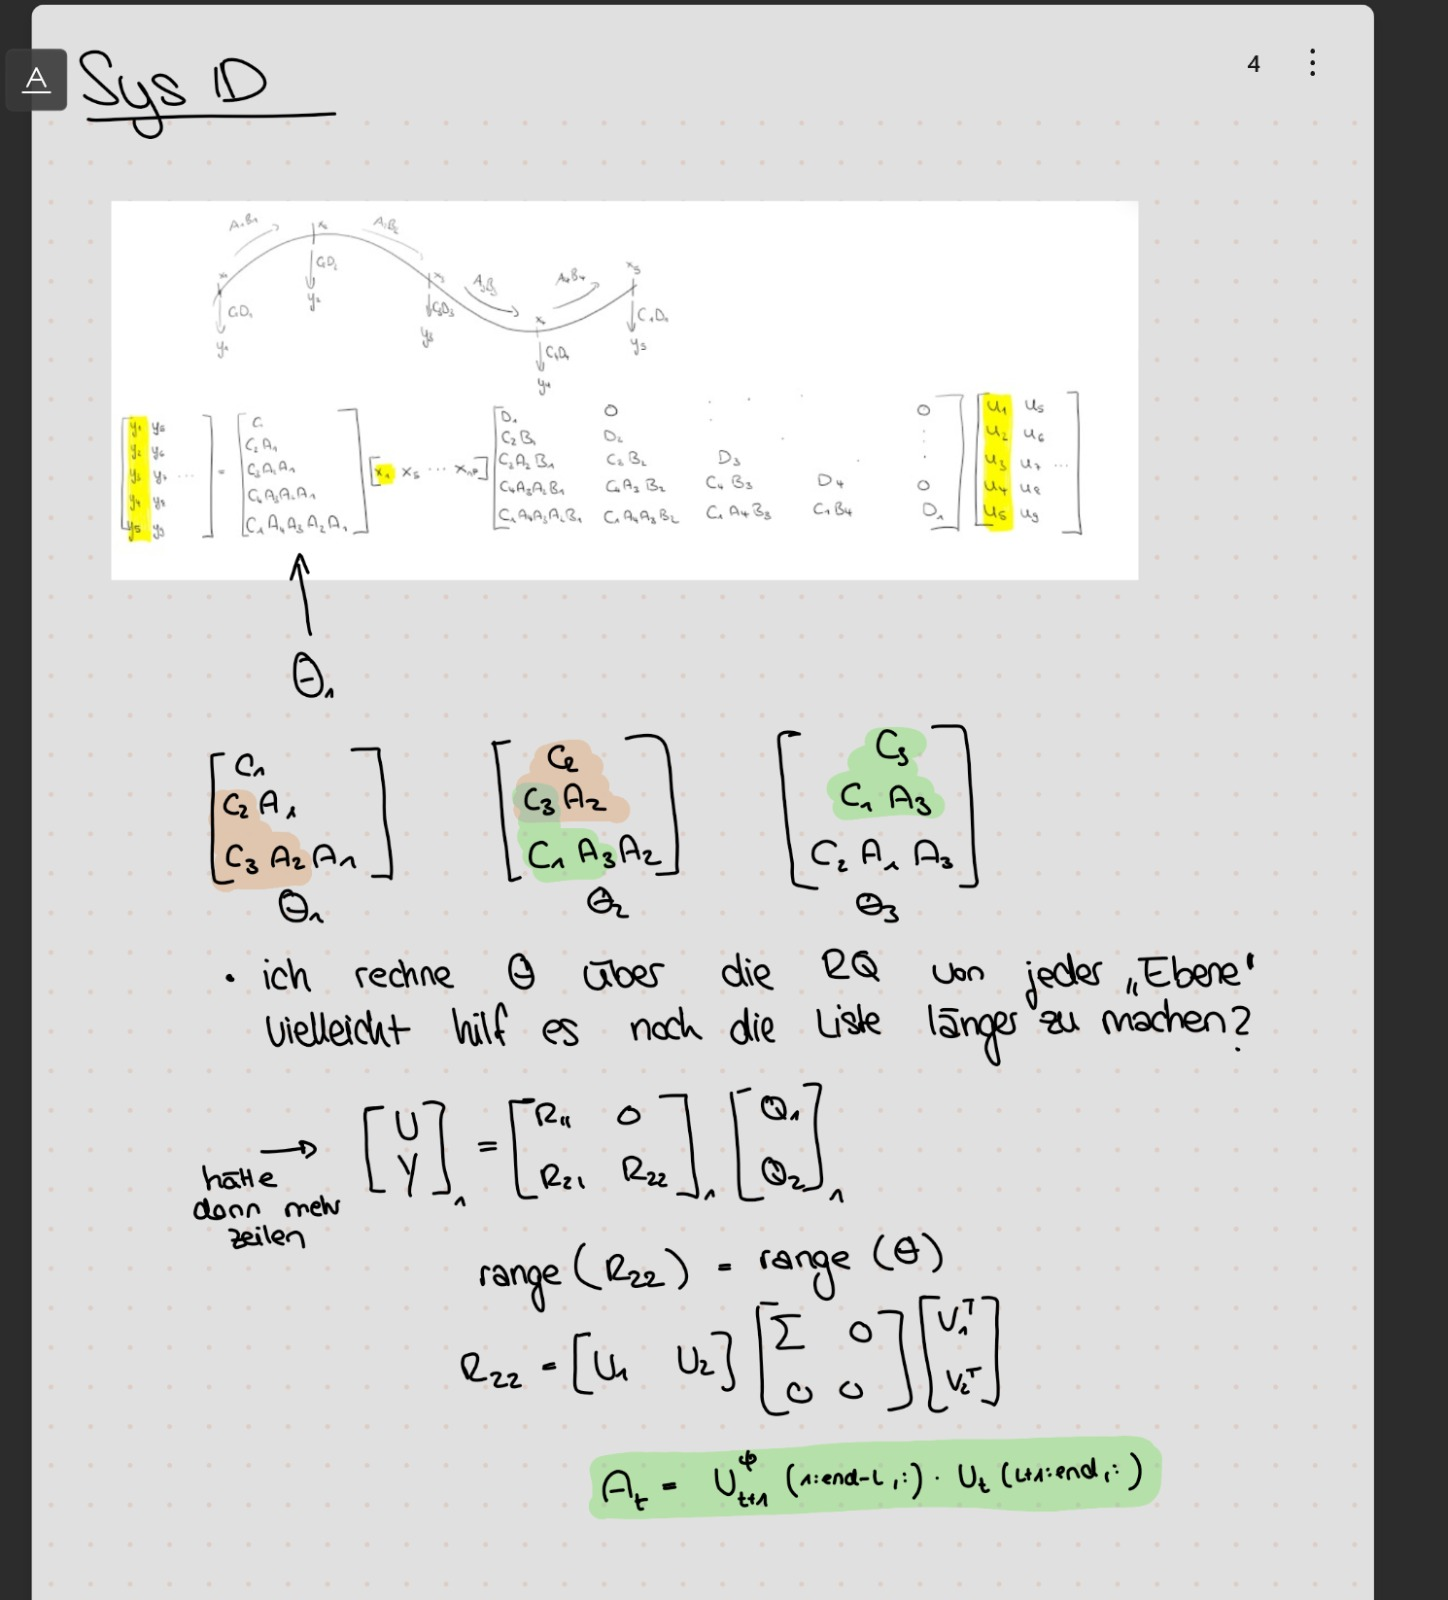 A
Sys ID
4
A₁B₁ x₂ A₂B₂
C₂D₂
x₃ A₃B₃ A₄B₄ x₅
C₁D₁ C₃D₃ C₁D₁
y₁ y₂ y₃ y₅
y₄
[y₁ y₅; y₂ y₆; y₃ y₇ ...; y₄ y₈; y₅ y₉] = [C₁; C₂A₁; C₃A₂A₁; C₄A₃A₂A₁; C₁A₄A₃A₂A₁] [x₁ x₅ ... ] [D₁ 0 . . 0; C₂B₁ D₂; C₃A₂B₁ C₃B₂ D₃; C₄A₃A₂B₁ C₄A₃B₂ C₄B₃ D₄ 0; C₁A₄A₃A₂B₁ C₁A₄A₃B₂ C₁A₄B₃ C₁B₄ D₁] [u₁ u₅; u₂ u₆; u₃ u₇ ...; u₄ u₈; u₅ u₉]
Θ₁
[C₁; C₂A₁; C₃A₂A₁] [C₂; C₃A₂; C₁A₃A₂] [C₃; C₁A₃; C₂A₁A₃]
Θ₁ Θ₂ Θ₃
• ich rechne Θ über die RQ von jeder „Ebene"
vielleicht hilf es noch die Liste länger zu machen?
hätte → [U; Y]₁ = [R₁₁ 0; R₂₁ R₂₂]₁ [Q₁; Q₂]₁
dann mehr
zeilen
range (R₂₂) = range (Θ)
R₂₂ = [U₁ U₂] [Σ 0; 0 0] [V₁ᵀ; V₂ᵀ]
Aₜ = Uₜ₊₁^φ (1:end-L,:) · Uₜ (L+1:end,:)